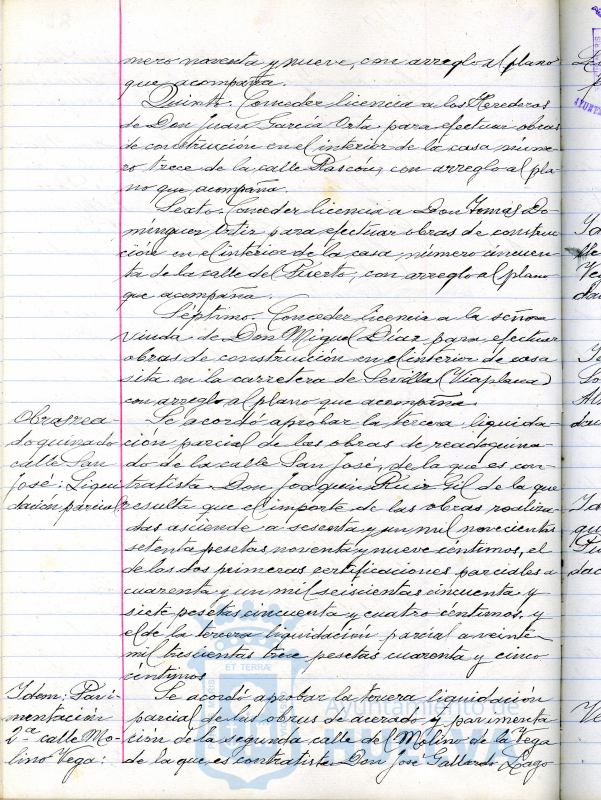 mero noventa y nueve, con arreglo al plano
que acompaña.
Quinto. Conceder licencia a los Herederos
de Don Juan García Orta para efectuar obras
de construcción en el interior de la casa núme-
ro trece de la calle Rascón, con arreglo al pla-
no que acompaña.
Sexto. Conceder licencia a Don Tomás Do-
mínguez Ortiz para efectuar obras de construc-
ción en el interior de la casa número cincuen-
ta de la calle del Puerto, con arreglo al plano
que acompaña.
Séptimo. Conceder licencia a la señora
viuda de Don Miguel Díaz para efectuar
obras de construcción en el interior de casa
sita en la carretera de Sevilla (Viaplana)
con arreglo al plano que acompaña.
Obras rea
doquinado
calle San
José: Liqui
dación parcial
Se acordó aprobar la tercera liquida-
ción parcial de las obras de readoquina-
do de la calle San José, de la que es con-
tratista Don Joaquín Ruiz Gil de la que
resulta que el importe de las obras realiza-
das asciende a sesenta y un mil novecientas
setenta pesetas noventa y nueve céntimos, el
de las dos primeras certificaciones parciales a
cuarenta y un mil seiscientas cincuenta y
siete pesetas cincuenta y cuatro céntimos, y
el de la tercera liquidación parcial a veinte
mil trescientas trece pesetas cuarenta y cinco
céntimos
Idem: Pavi-
mentación
2ª calle Mo-
lino Vega:
Se acordó aprobar la tercera liquidación
parcial de las obras de acerado y pavimenta
ción de la segunda calle del Molino de la Vega
de la que es contratista Don José Gallardo Lago
ET TERRÆ
Ayuntamiento de
HUELVA